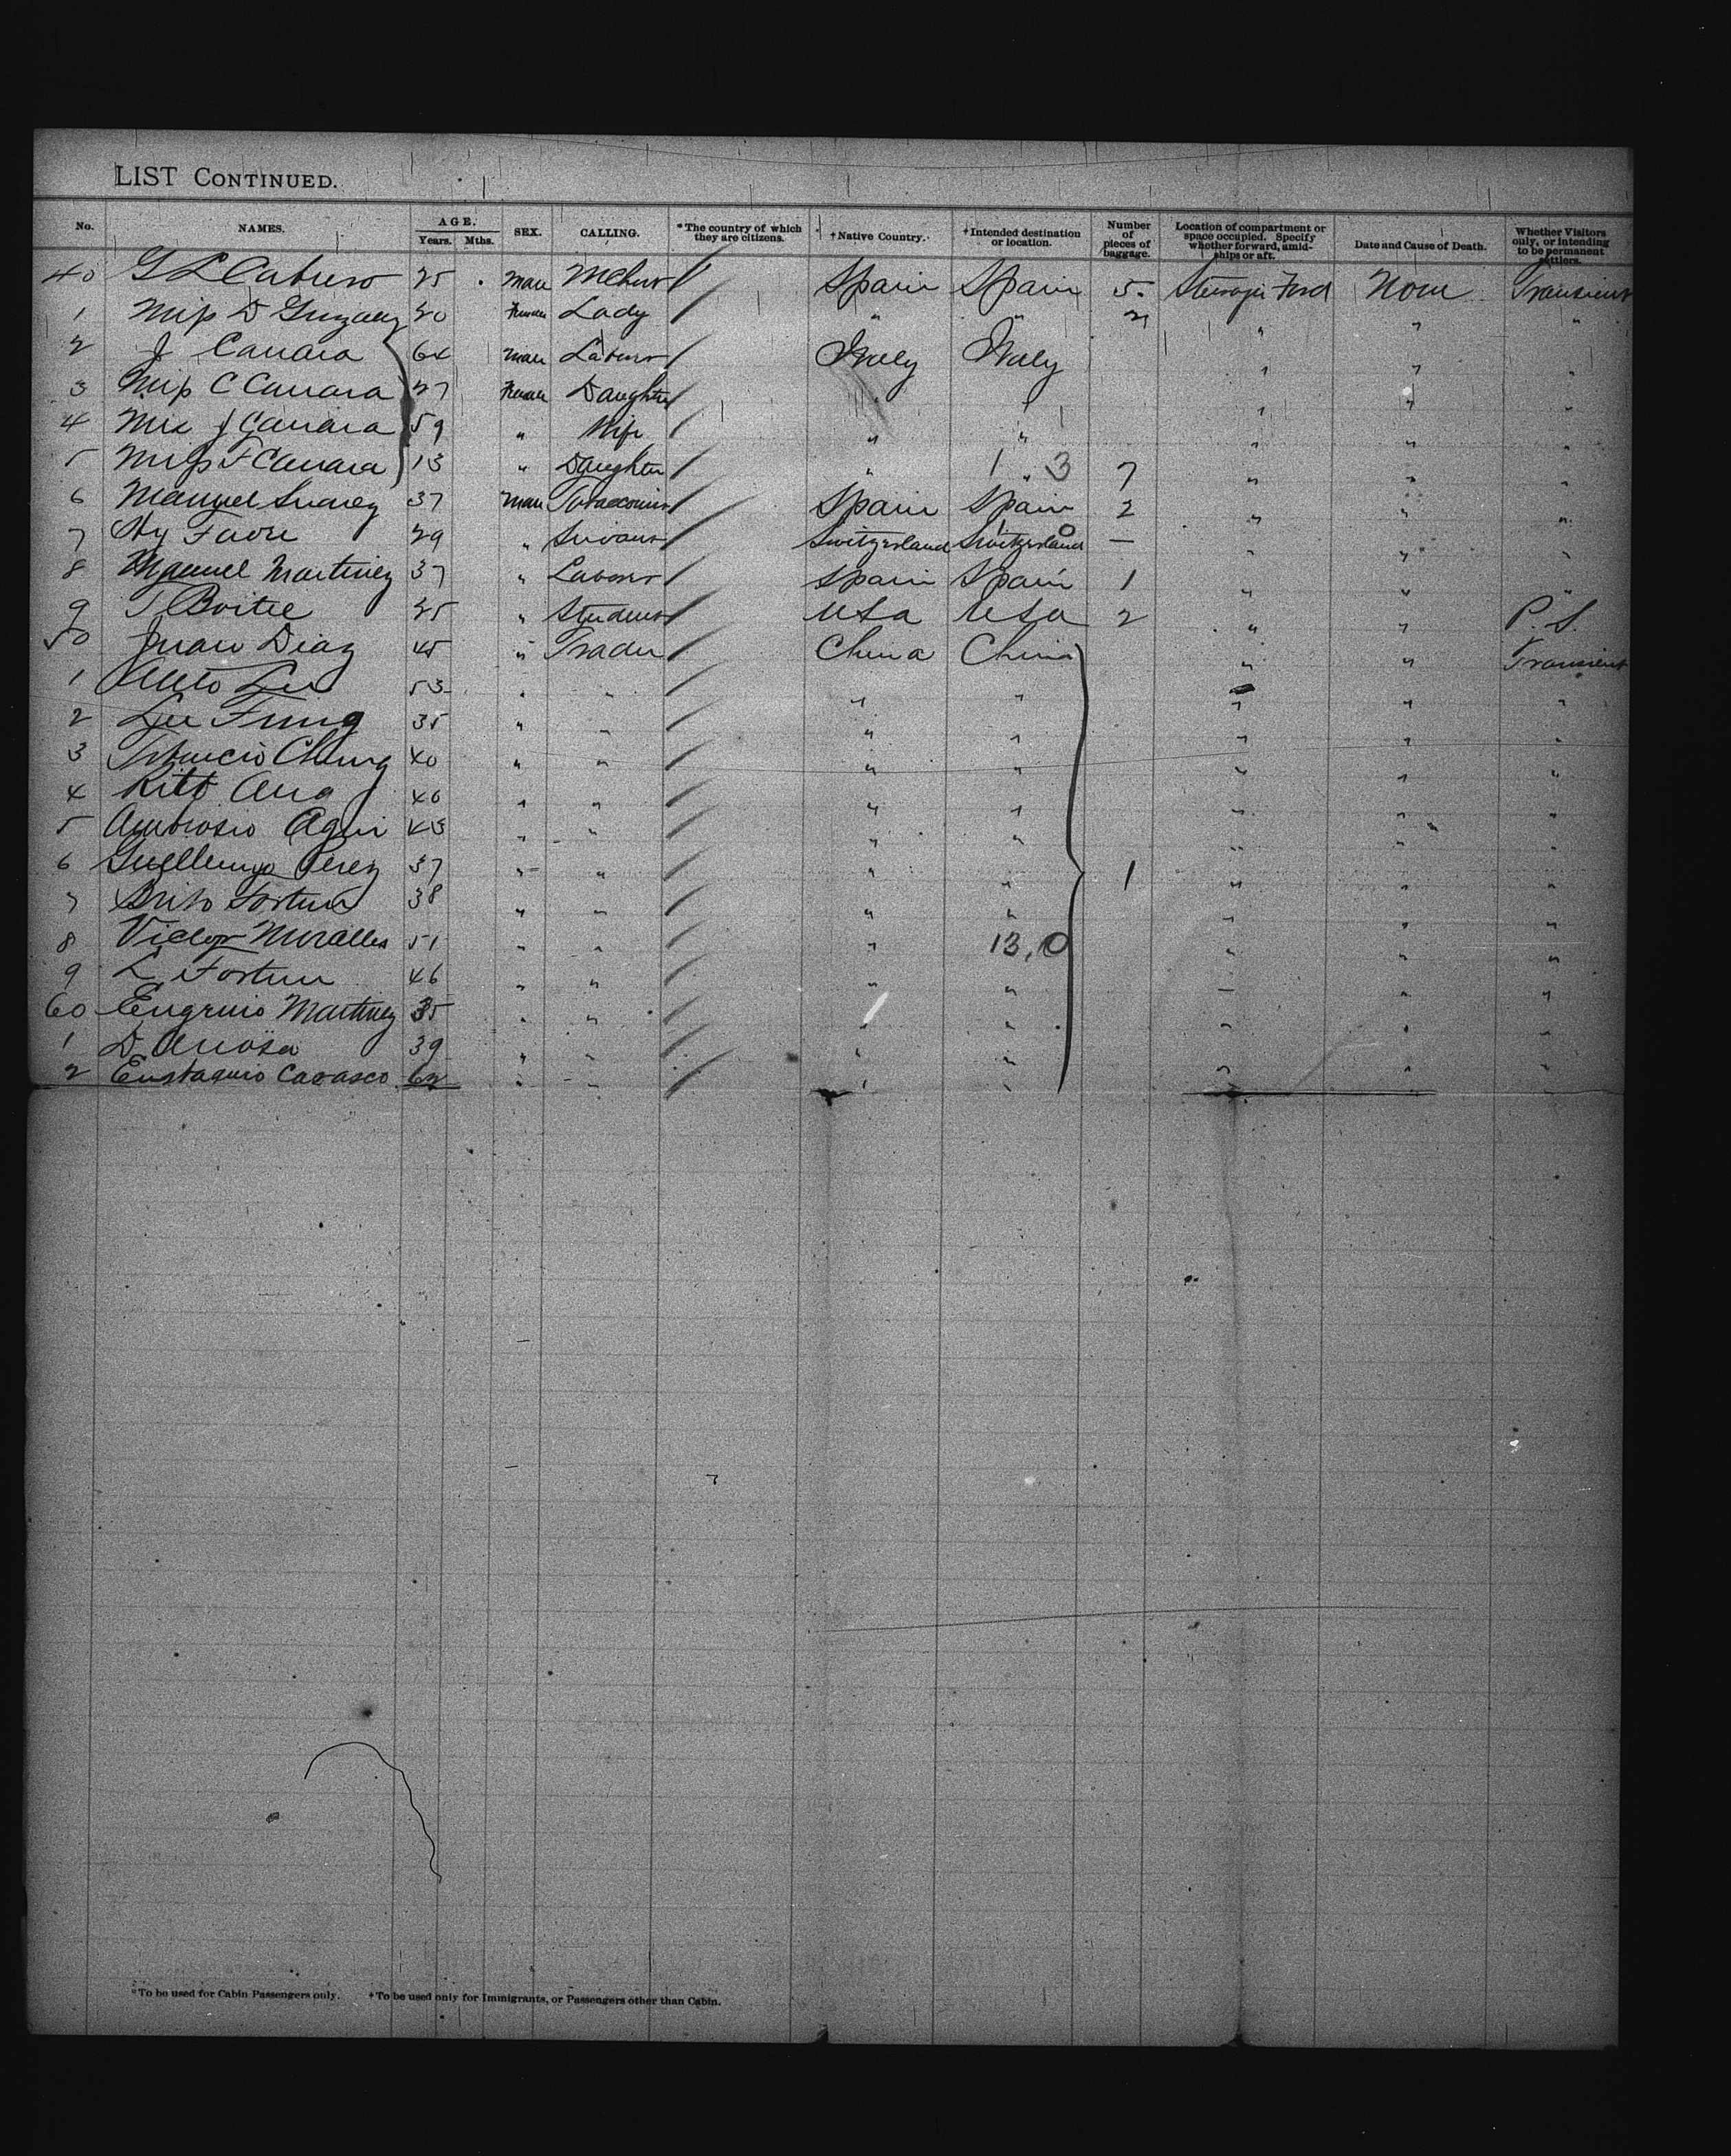 LIST CONTINUED.
No. NAMES. AGE. Years. Mths. SEX. CALLING. *The country of which they are citizens. †Native Country. †Intended destination or location. Number of pieces of baggage. Location of compartment or space occupied. Specify whether forward, amidships or aft. Date and Cause of Death. Whether Visitors only, or intending to be permanent settlers.
40 G L 25 Male Spain Spain 5 Ford None Transient
1 Miss D 20 Female Lady " " 2 " " "
2 J Carrara 64 Male Labour Italy Italy " " "
3 Miss C Carrara 27 Female Daughter " " " " "
4 Mrs J Carrara 59 " Wife " " " " "
5 Miss F Carrara 13 " Daughter " 1 " 3 7 " " "
6 Manuel Suarez 37 Male Spain Spain 2 " " "
7 Hy Favre 29 " Servant Switzerland Switzerland — " " "
8 Manuel Martinez 37 " Labour Spain Spain 1 " " "
9 T 25 " Student USA USA 2 " " P. S.
50 Juan Diaz 45 " Trader China China " " Transient
1 53 " " " " " " "
2 Lee Fung 35 " " " " " " "
3 Chung 40 " " " " " " "
4 46 " " " " " " "
5 Ambrosio 43 " " " " " " "
6 Perez 37 " " " " 1 " " "
7 Fortun 38 " " " " " " "
8 Victor Miralles 51 " " " 13,0 " " "
9 L Fortun 46 " " " " " " "
60 Eugenio Martinez 35 " " " " " " "
1 D 39 " " " " " " "
2 Eustaquio Carasco 62 " " " " " " "
*To be used for Cabin Passengers only. †To be used only for Immigrants, or Passengers other than Cabin.